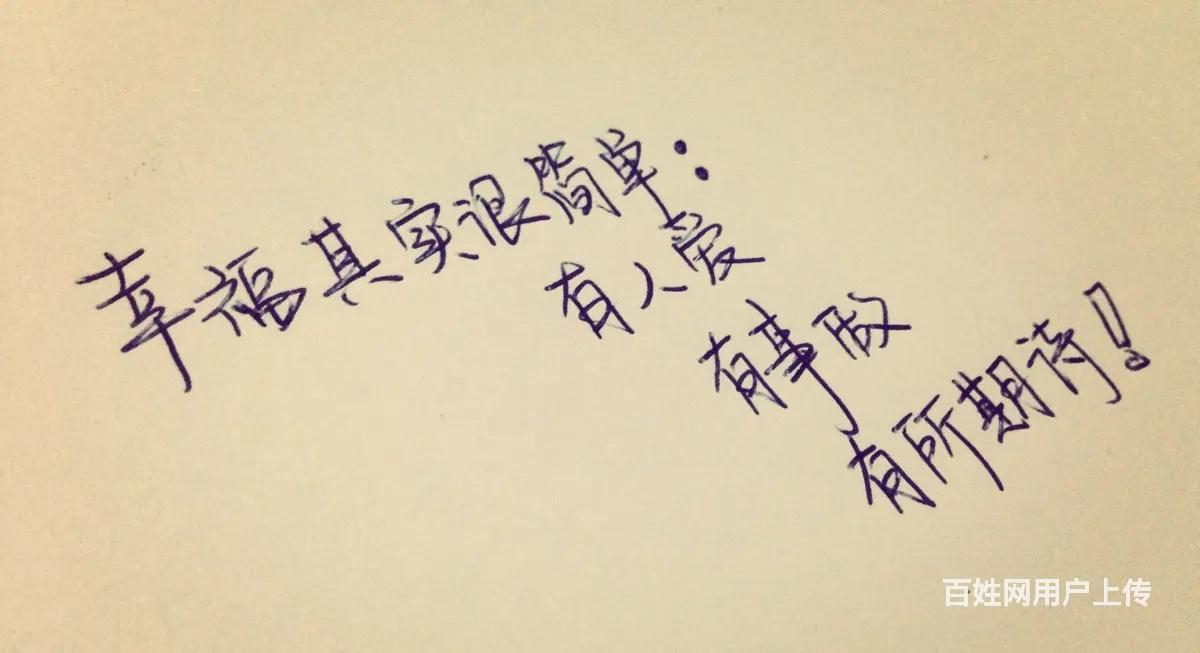 幸福其实很简单：
有人爱
有事做
有所期待！
百姓网用户上传